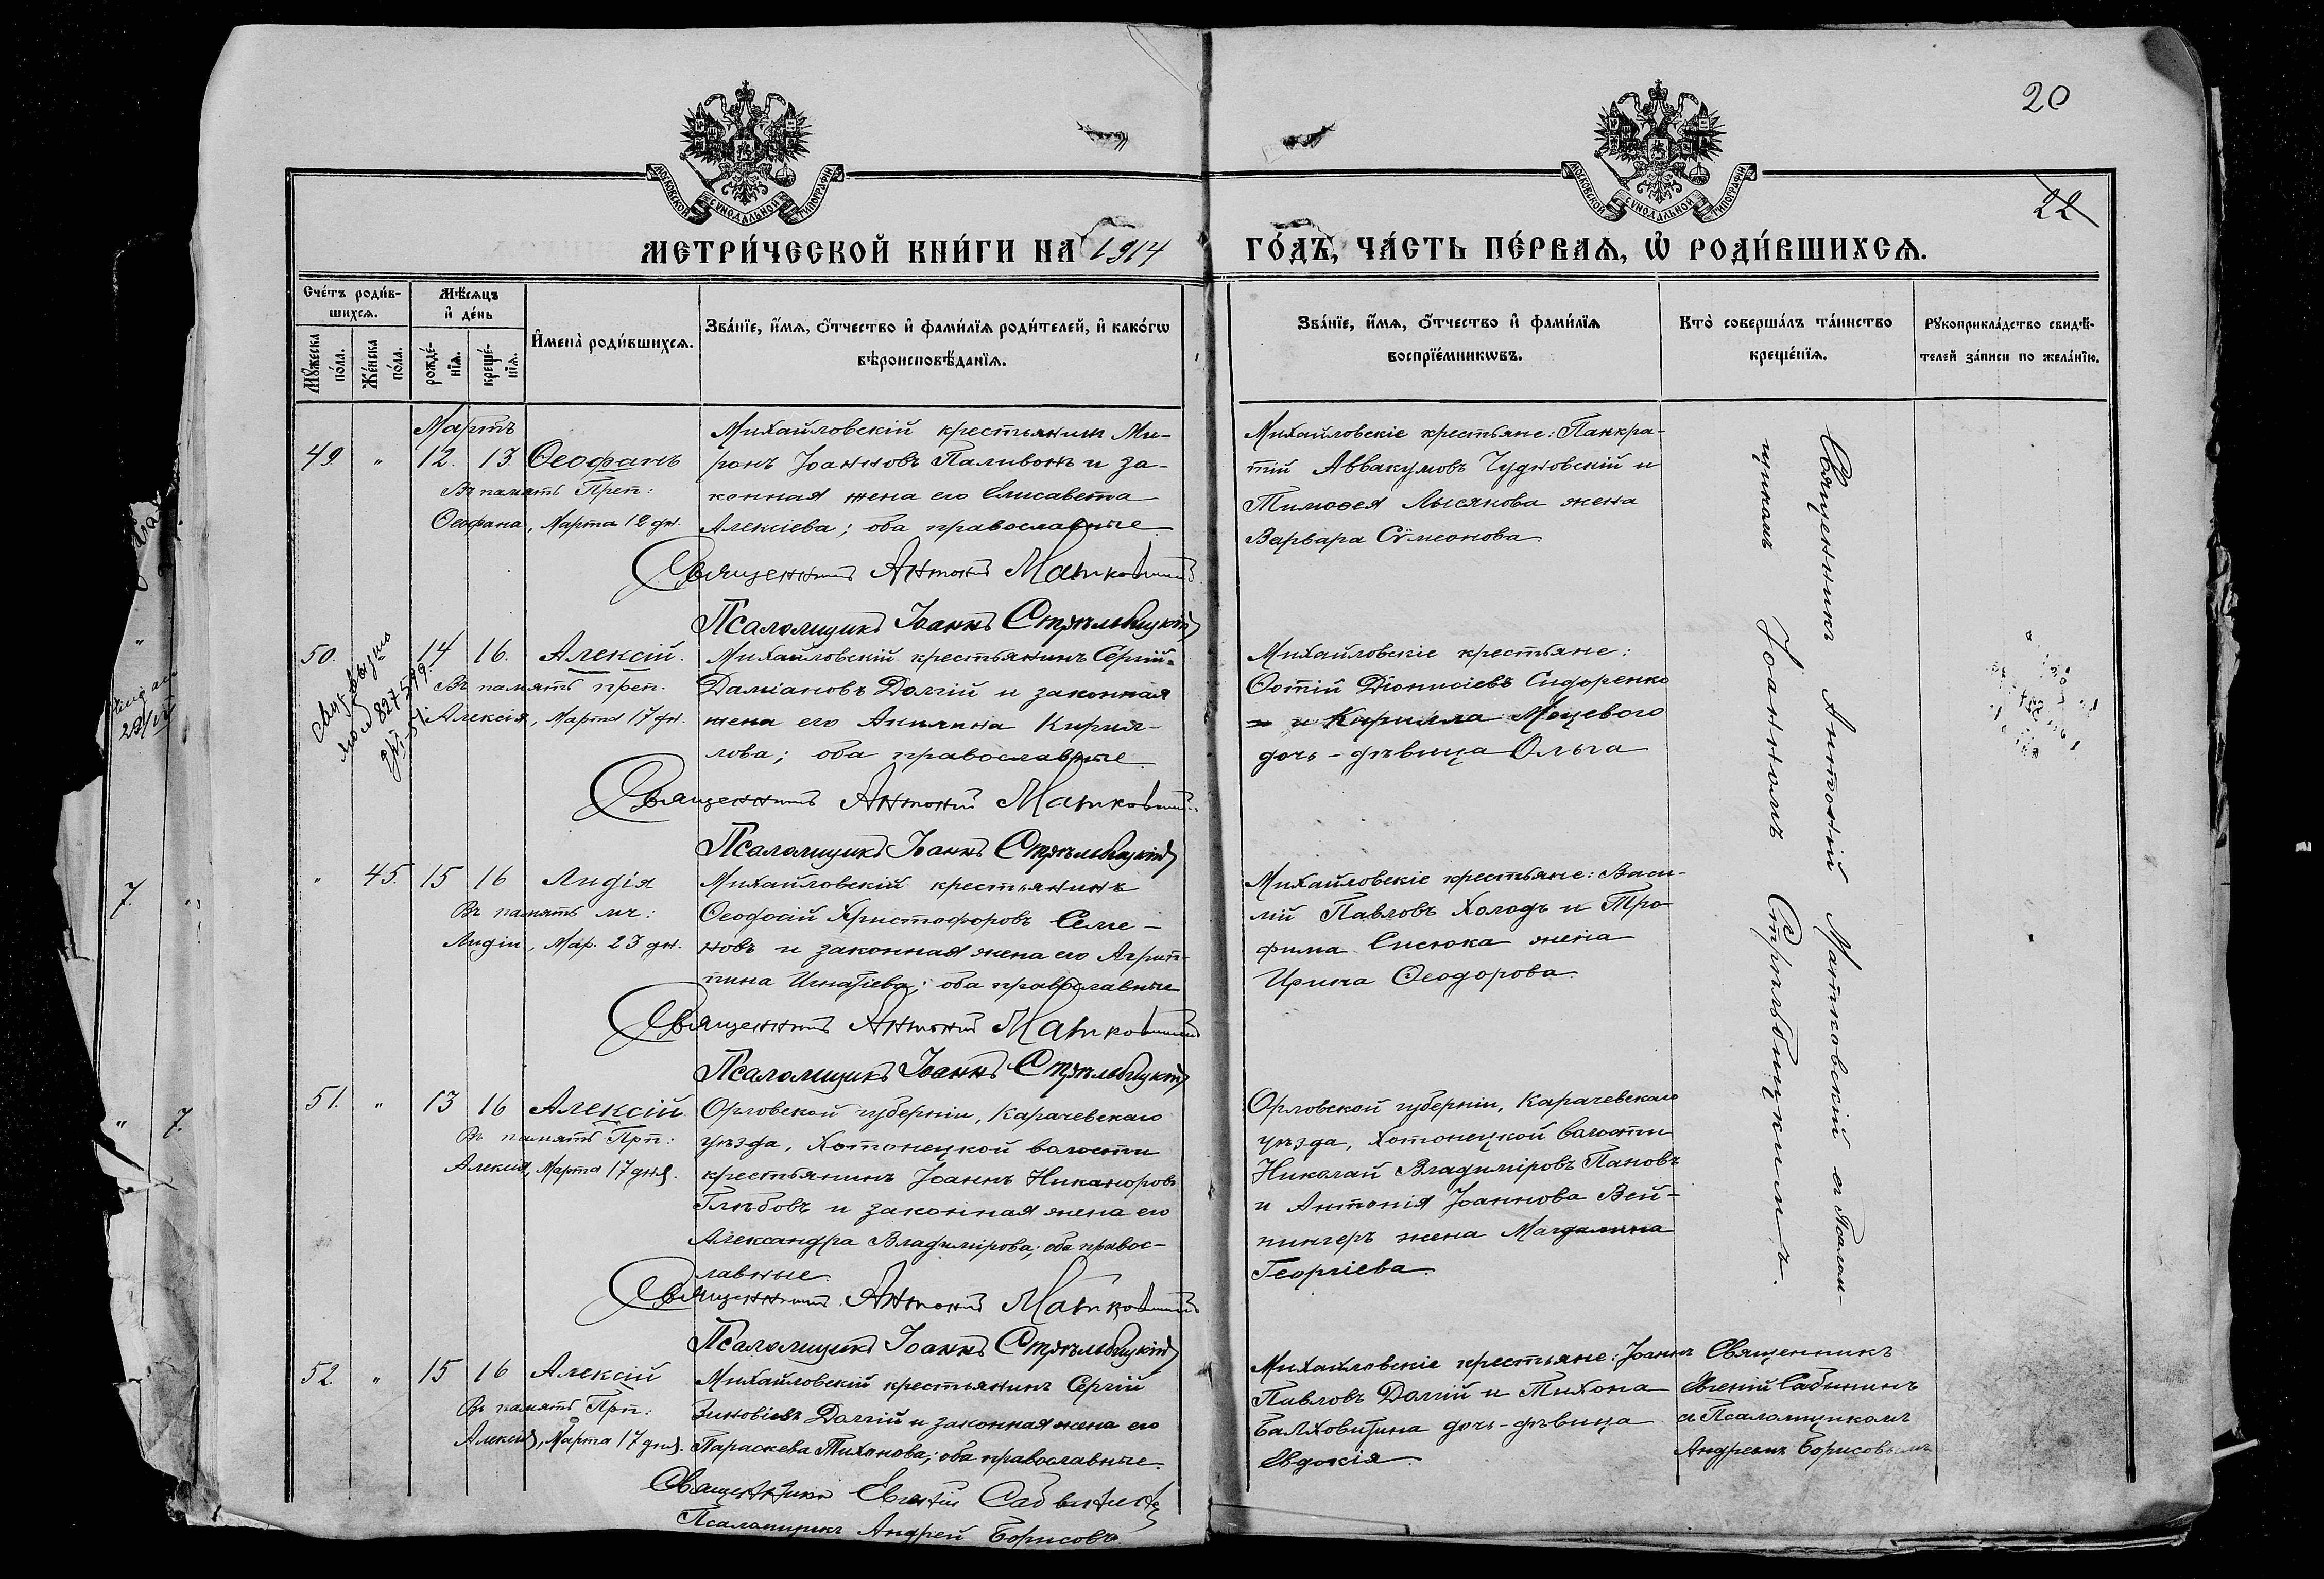 20
22
МОСКОВСКОЙ СѴНОДАЛЬНОЙ ТИПОГРАФІИ
МОСКОВСКОЙ СѴНОДАЛЬНОЙ ТИПОГРАФІИ
МЕТРИ́ЧЕСКОЙ КНИ́ГИ НА 1914 ГО́ДЪ, ЧА́СТЬ ПЕ́РВАѦ, Ѡ҆ РОДИ́ВШИХСѦ.
Сче́тъ роди́в-
шихсѧ.
Мѣ́сѧцъ
и҆ де́нь
Мꙋ́жеска
по́ла.
Же́нска
по́ла.
рожде́-
нїѧ.
креще́-
нїѧ.
И҆мена̀ роди́вшихсѧ.
Зва́нїе, и҆́мѧ, ѻ҆́тчество и҆ фами́лїѧ роди́телей, и҆ како́гѡ
вѣроисповѣ́данїѧ.
Зва́нїе, и҆́мѧ, ѻ҆́тчество и҆ фами́лїѧ
воспрїе́мникѡвъ.
Кто̀ соверша́лъ та́инство
креще́нїѧ.
Рꙋкоприкла́дство свидѣ́-
телей за́писи по жела́нїю.
Мартъ
49. " 12. 13. Ѳеофанъ
Въ память Преп:
Ѳеофана, Марта 12 дн.
Михайловскій крестьянинъ Ми-
ронъ Іоанновъ Паливода и за-
конная жена его Елисавета
Алексіева; оба православные
Священникъ Антоній Матковскій
Псаломщикъ Іоаннъ Стрѣльбицкій
Михайловскіе крестьяне: Панкра-
тій Аввакумовъ Чудновскій и
Тимоѳея Лысякова жена
Варвара Сѵмеонова.
Священникъ Антоній Матковскій съ Псалом-
щикомъ Іоанномъ Стрѣльбицкимъ.
50. " 14 16. Алексій.
Въ память преп.
Алексія, Марта 17 дн.
Михайловскій крестьянинъ Сергій
Даміановъ Долгій и законная
жена его Акилина Кирил-
лова; оба православные
Священникъ Антоній Матковскій
Псаломщикъ Іоаннъ Стрѣльбицкій
Михайловскіе крестьяне:
Фотій Діонисіевъ Сидоренко
и Кирилла Моцевого
дочь-дѣвица Ольга
" 45. 15 16 Лидія
Въ память мч:
Лидіи, Мар. 23 дн.
Михайловскій крестьянинъ
Ѳеодосій Христофоровъ Семе-
новъ и законная жена его Агрип-
пина Игнатіева; оба православные
Священникъ Антоній Матковскій
Псаломщикъ Іоаннъ Стрѣльбицкій
Михайловскіе крестьяне: Васи-
лій Павловъ Холодъ и Тро-
фима Сисюка жена
Ирина Ѳеодорова.
51. " 13 16 Алексій
Въ память Прп:
Алексія, Марта 17 дня.
Орловской губерніи, Карачевскаго
уѣзда, Хотонецкой волости
крестьянинъ Іоаннъ Никаноровъ
Глѣбовъ и законная жена его
Александра Владимірова; оба правос-
лавные.
Священникъ Антоній Матковскій
Псаломщикъ Іоаннъ Стрѣльбицкій
Орловской губерніи, Карачевскаго
уѣзда, Хотонецкой волости
Николай Владиміровъ Пановъ
и Антонія Іоаннова Вей-
пингеръ жена Магдалина
Георгіева.
52. " 15 16 Алексій
Въ память Прп:
Алексія, Марта 17 дня.
Михайловскій крестьянинъ Сергій
Зиновіевъ Долгій и законная жена его
Параскева Тихонова; оба православные.
Священникъ Евгеній Савинихъ
Псаломщикъ Андрей Борисовъ.
Михайловскіе крестьяне: Іоаннъ
Павловъ Долгій и Тихона
Балховитина дочь-дѣвица
Евдокія
Священникъ
Евгеній Сабининъ
съ Псаломщикомъ
Андреемъ Борисовымъ
7.
" 7.